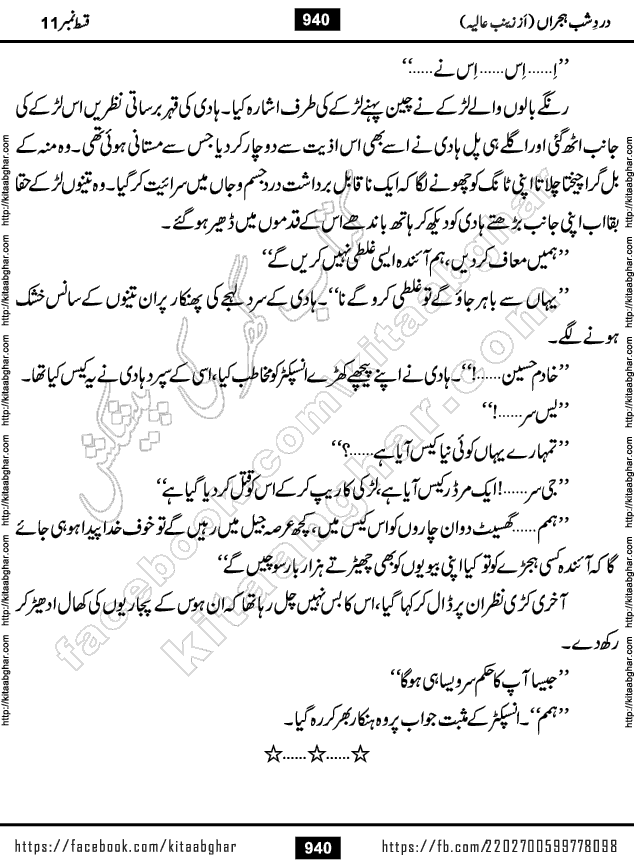 دردِ شب ہجراں (از زینب عالیہ)
940
قسط نمبر 11
’’اِ......اِس......اِس نے......‘‘
رنگے بالوں والے لڑکے نے چین پہنے لڑکے کی طرف اشارہ کیا۔ ہادی کی قہر برساتی نظریں اس لڑکے کی
جانب اٹھ گئی اور اگلے ہی پل ہادی نے اسے بھی اس اذیت سے دوچار کر دیا جس سے مستانی ہوئی تھی۔ وہ منہ کے
بل گرا چیختا چلاتا اپنی ٹانگ کو چھونے لگا کہ ایک ناقابل برداشت درد جسم و جاں میں سرائیت کر گیا۔ وہ تینوں لڑکے حقا
بقا اب اپنی جانب بڑھتے ہادی کو دیکھ کر ہاتھ باندھے اس کے قدموں میں ڈھیر ہو گئے۔
’’ہمیں معاف کر دیں، ہم آئندہ ایسی غلطی نہیں کریں گے‘‘
’’یہاں سے باہر جاؤ گے تو غلطی کرو گے نا‘‘۔ ہادی کے سرد لہجے کی پھنکار پر ان تینوں کے سانس خشک
ہونے لگے۔
’’خادم حسین......!‘‘۔ ہادی نے اپنے پیچھے کھڑے انسپکٹر کو مخاطب کیا، اسی کے سپرد ہادی نے یہ کیس کیا تھا۔
’’یس سر......!‘‘
’’تمہارے یہاں کوئی نیا کیس آیا ہے......؟‘‘
’’جی سر......! ایک مرڈر کیس آیا ہے، لڑکی کا ریپ کر کے اس کو قتل کر دیا گیا ہے‘‘
’’ہمم......گھسیٹ دو ان چاروں کو اس کیس میں، کچھ عرصہ جیل میں رہیں گے تو خوف خدا پیدا ہو ہی جائے
گا کہ آئندہ کسی ہجڑے کو تو کیا اپنی بیویوں کو بھی چھیڑتے ہزار بار سوچیں گے‘‘
آخری کڑی نظر ان پر ڈال کر کہا گیا، اس کا بس نہیں چل رہا تھا کہ ان ہوس کے پجاریوں کی کھال ادھیڑ کر
رکھ دے۔
’’جیسا آپ کا حکم سر ویسا ہی ہو گا‘‘
’’ہمم‘‘۔ انسپکٹر کے مثبت جواب پر وہ ہنکار بھر کر رہ گیا۔
☆......☆......☆
http://kitaabghar.com http://kitaabghar.com http://kitaabghar.com http://kitaabghar.com http://kitaabghar.com http://kitaabghar.com
http://kitaabghar.com http://kitaabghar.com http://kitaabghar.com http://kitaabghar.com http://kitaabghar.com http://kitaabghar.com
کتاب گھر کی پیشکش
facebook.com/kitaabghar
kitaabghar.com
https://facebook.com/kitaabghar
940
https://fb.com/2202700599778098